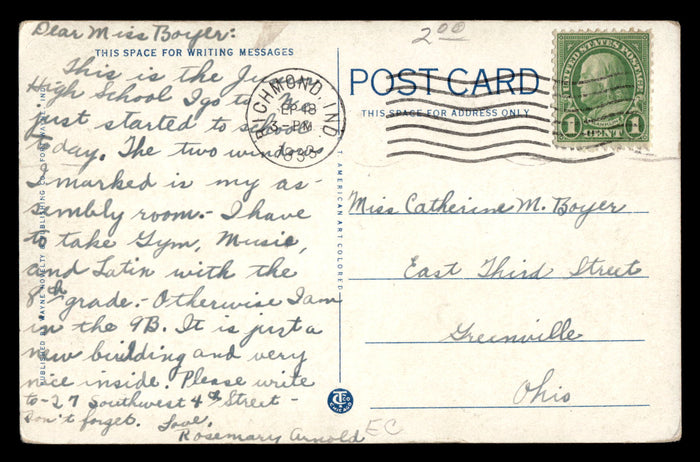 Dear Miss Boyer:
THIS SPACE FOR WRITING MESSAGES
This is the Junior
High School I go to. I
just started to school
today. The two windows
I marked is my as-
sembly room.- I have
to take Gym, Music,
and Latin with the
8th grade.- Otherwise I am
in the 9B. It is just a
new building and very
nice inside. Please write
to-27 Southwest 4th Street-
Don't forget. Love,
Rosemary Arnold
EC
PUBLISHED BY WAYNE NOVELTY & PUBLISHING CO., FORT WAYNE, IND.
C. T. AMERICAN ART COLORED
2.00
POST CARD
THIS SPACE FOR ADDRESS ONLY
RICHMOND, IND.
SEP
3 - PM
193
UNITED STATES POSTAGE
1 CENT 1
Miss Catherine M. Boyer
East Third Street
Greenville
Ohio
CT CO
CHICAGO